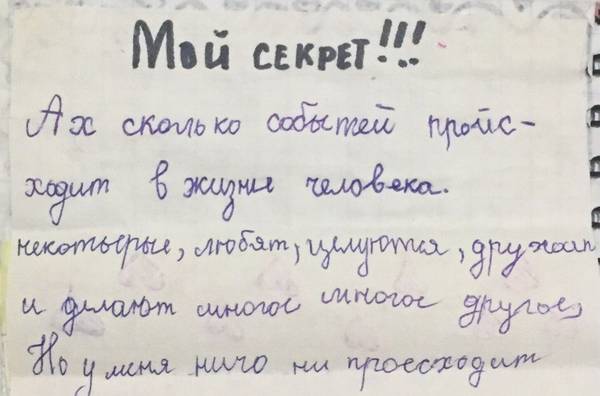 Мой секрет!!!
Ах сколько событей пройс-
ходит в жизне человека.
некотьрые, любят, целуются, дружат
и делают многое многое другое,
Но у меня ничо ни происходит